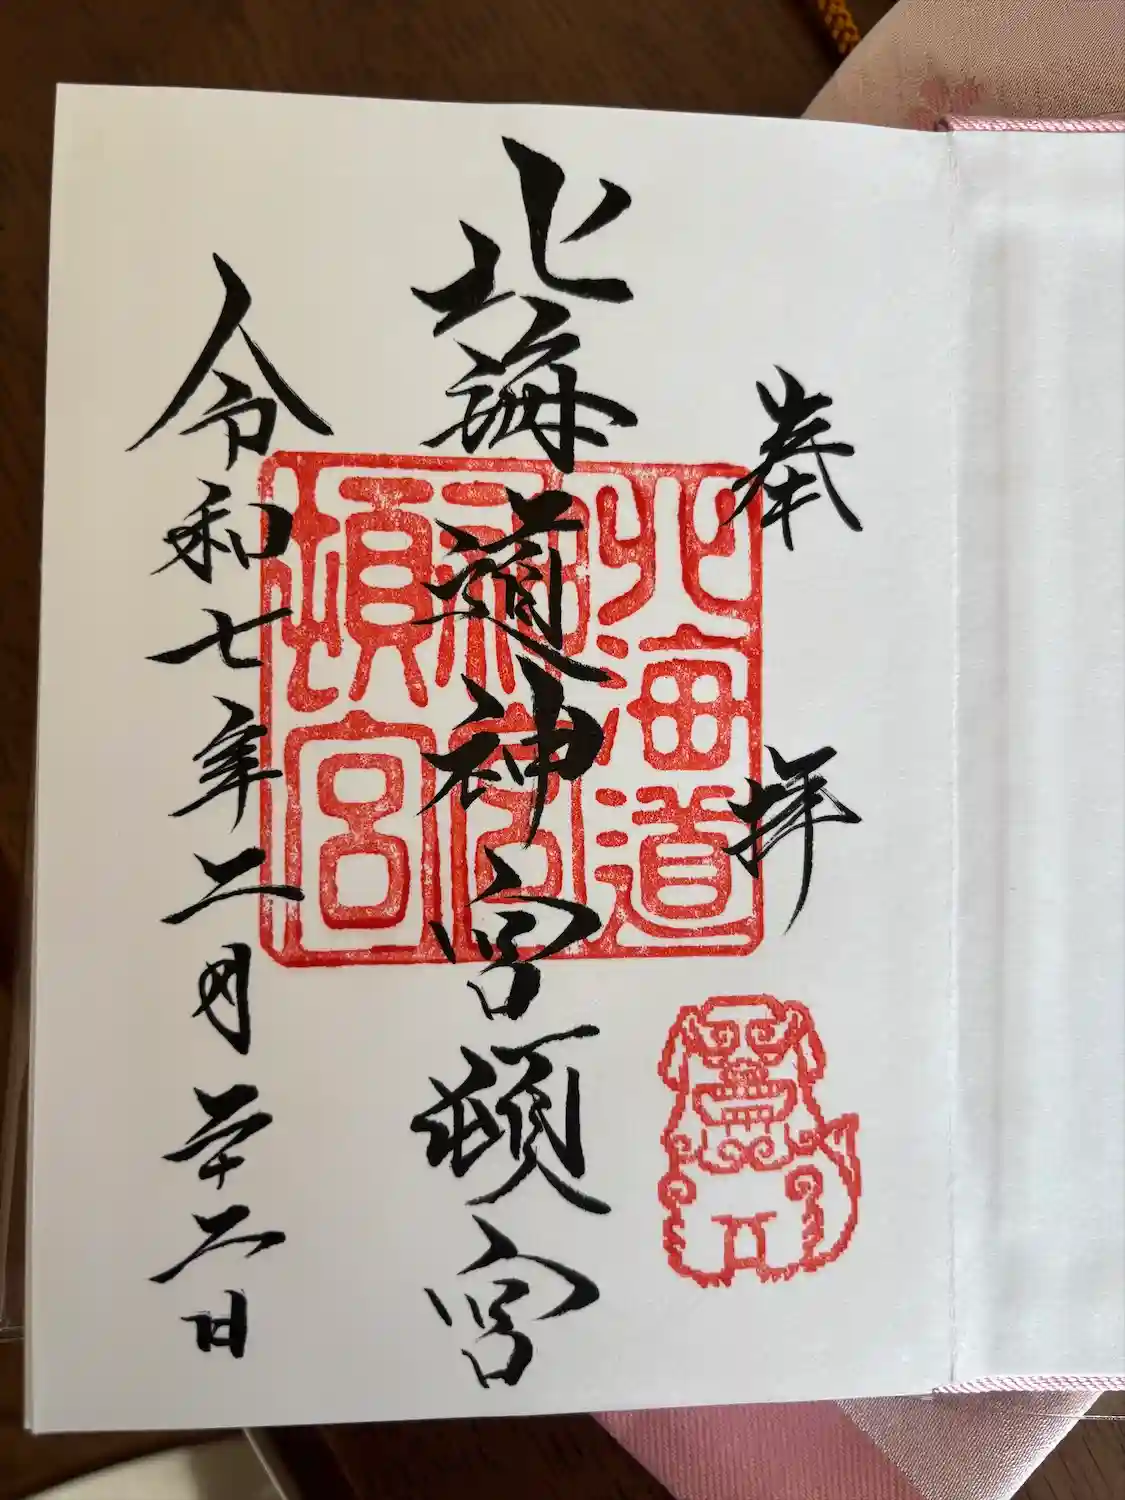 奉拝
北海道神宮頓宮
北海道
神宮
頓宮
令和七年二月廿二日